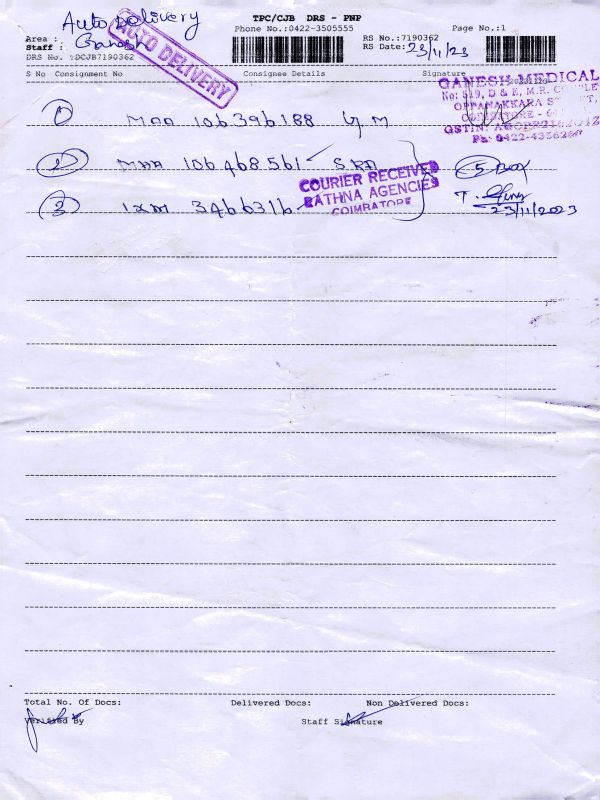 Auto Delivery
TPC/CJB DRS - PNP
Phone No.:0422-3505555
Page No.:1
Area :
Staff : Ganesh
DRS No. :DCJB7190362
RS No.:7190362
RS Date: 23/11/23
AUTO DELIVERY
S No Consignment No
Consignee Details
Signature
GANESH MEDICAL
No: 519, D & E, M.R.
OPPANAKKARA
COIMBATORE - 64
GSTIN:
Ph: 0422-
1 MAA 106396188 G M
2 MAA 106468561 SRA
5 BOX
COURIER RECEIVED
RATHNA AGENCIES
COIMBATORE
3 IXM 3466316
T.
23/11/2023
Total No. Of Docs:
Delivered Docs:
Non Delivered Docs:
Verified By
Staff Signature